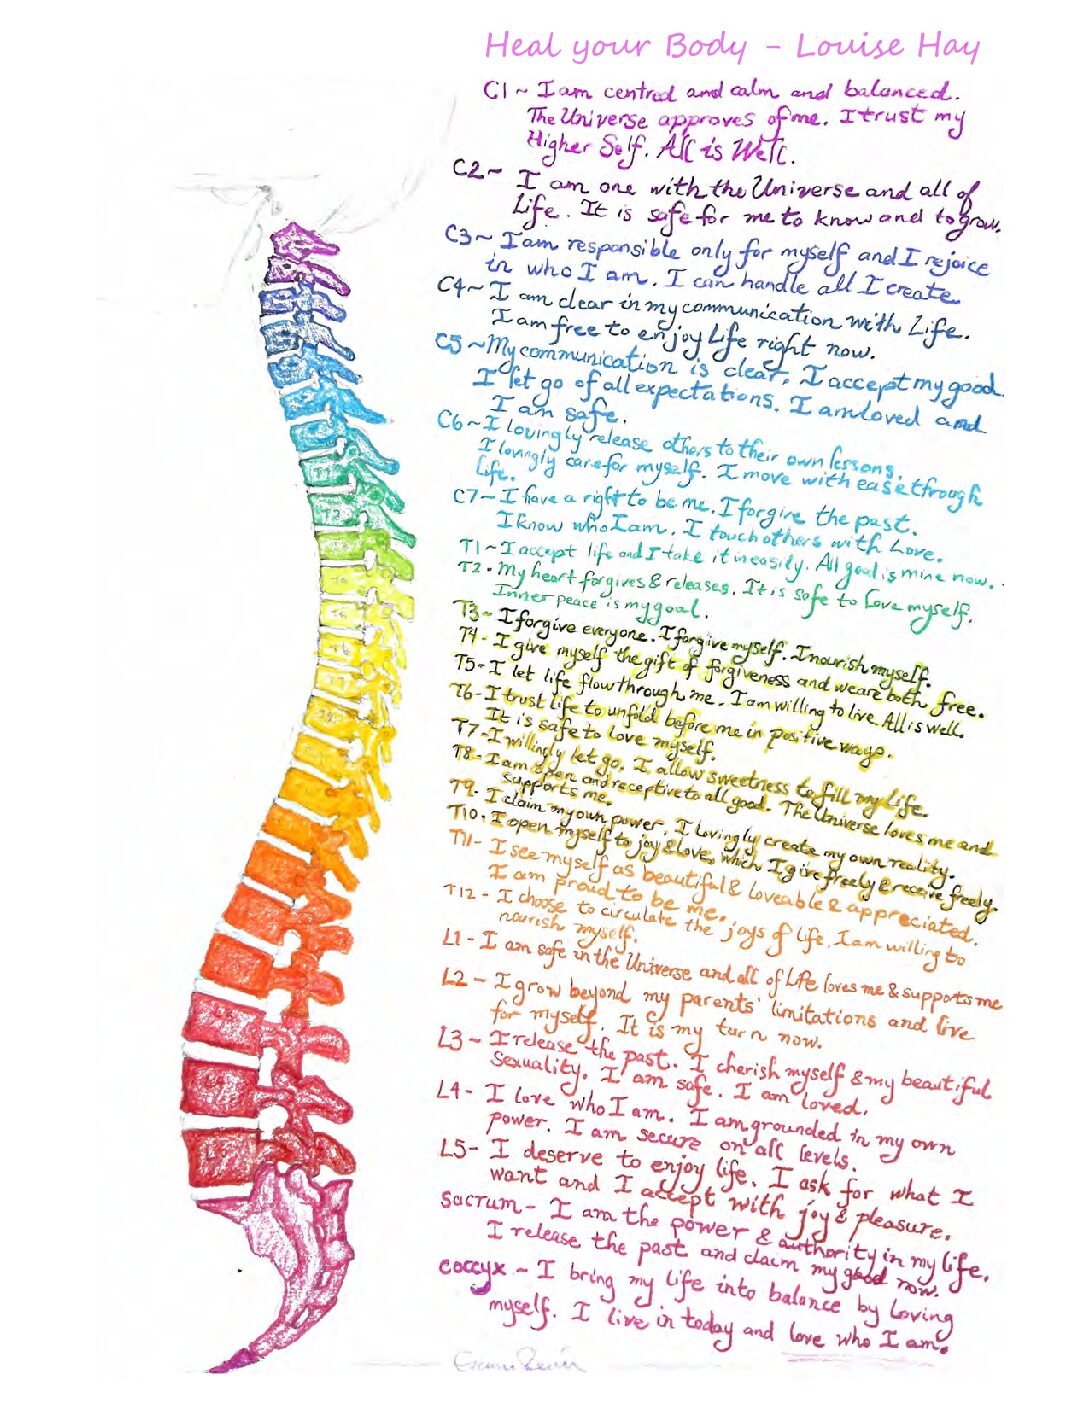 Heal your Body - Louise Hay
C1 ~ I am centred and calm and balanced.
The Universe approves of me. I trust my
Higher Self. All is Well.
C2 ~ I am one with the Universe and all of
Life. It is safe for me to know and to grow.
C3 ~ I am responsible only for myself and I rejoice
in who I am. I can handle all I create
C4 ~ I am clear in my communication with Life.
I am free to enjoy Life right now.
C5 ~ My communication is clear. I accept my good.
I let go of all expectations. I am loved and
I am safe.
C6 ~ I lovingly release others to their own lessons.
I lovingly care for myself. I move with ease through
life.
C7 - I have a right to be me. I forgive the past.
I know who I am. I touch others with Love.
T1 ~ I accept life and I take it in easily. All good is mine now.
T2 - My heart forgives & releases. It is safe to love myself.
Inner peace is my goal.
T3 - I forgive everyone. I forgive myself. I nourish myself.
T4 - I give myself the gift of forgiveness and we are both free.
T5 - I let life flow through me. I am willing to live. All is well.
T6 - I trust life to unfold before me in positive ways.
It is safe to love myself.
T7 - I willingly let go. I allow sweetness to fill my life
T8 - I am open and receptive to all good. The Universe loves me and
supports me.
T9 - I claim my own power. I lovingly create my own reality.
T10. I open myself to joy & love, which I give freely & receive freely.
T11 - I see myself as beautiful & loveable & appreciated.
I am proud to be me.
T12 - I choose to circulate the joys of life. I am willing to
nourish myself.
L1 - I am safe in the Universe and all of Life loves me & supports me
L2 - I grow beyond my parents' limitations and live
for myself. It is my turn now.
L3 - I release the past. I cherish myself & my beautiful
Sexuality. I am safe. I am loved.
L4 - I love who I am. I am grounded in my own
power. I am secure on all levels.
L5 - I deserve to enjoy life. I ask for what I
want and I accept with joy & pleasure.
Sacrum - I am the power & authority in my life.
I release the past and claim my good now.
coccyx - I bring my life into balance by loving
myself. I live in today and love who I am.